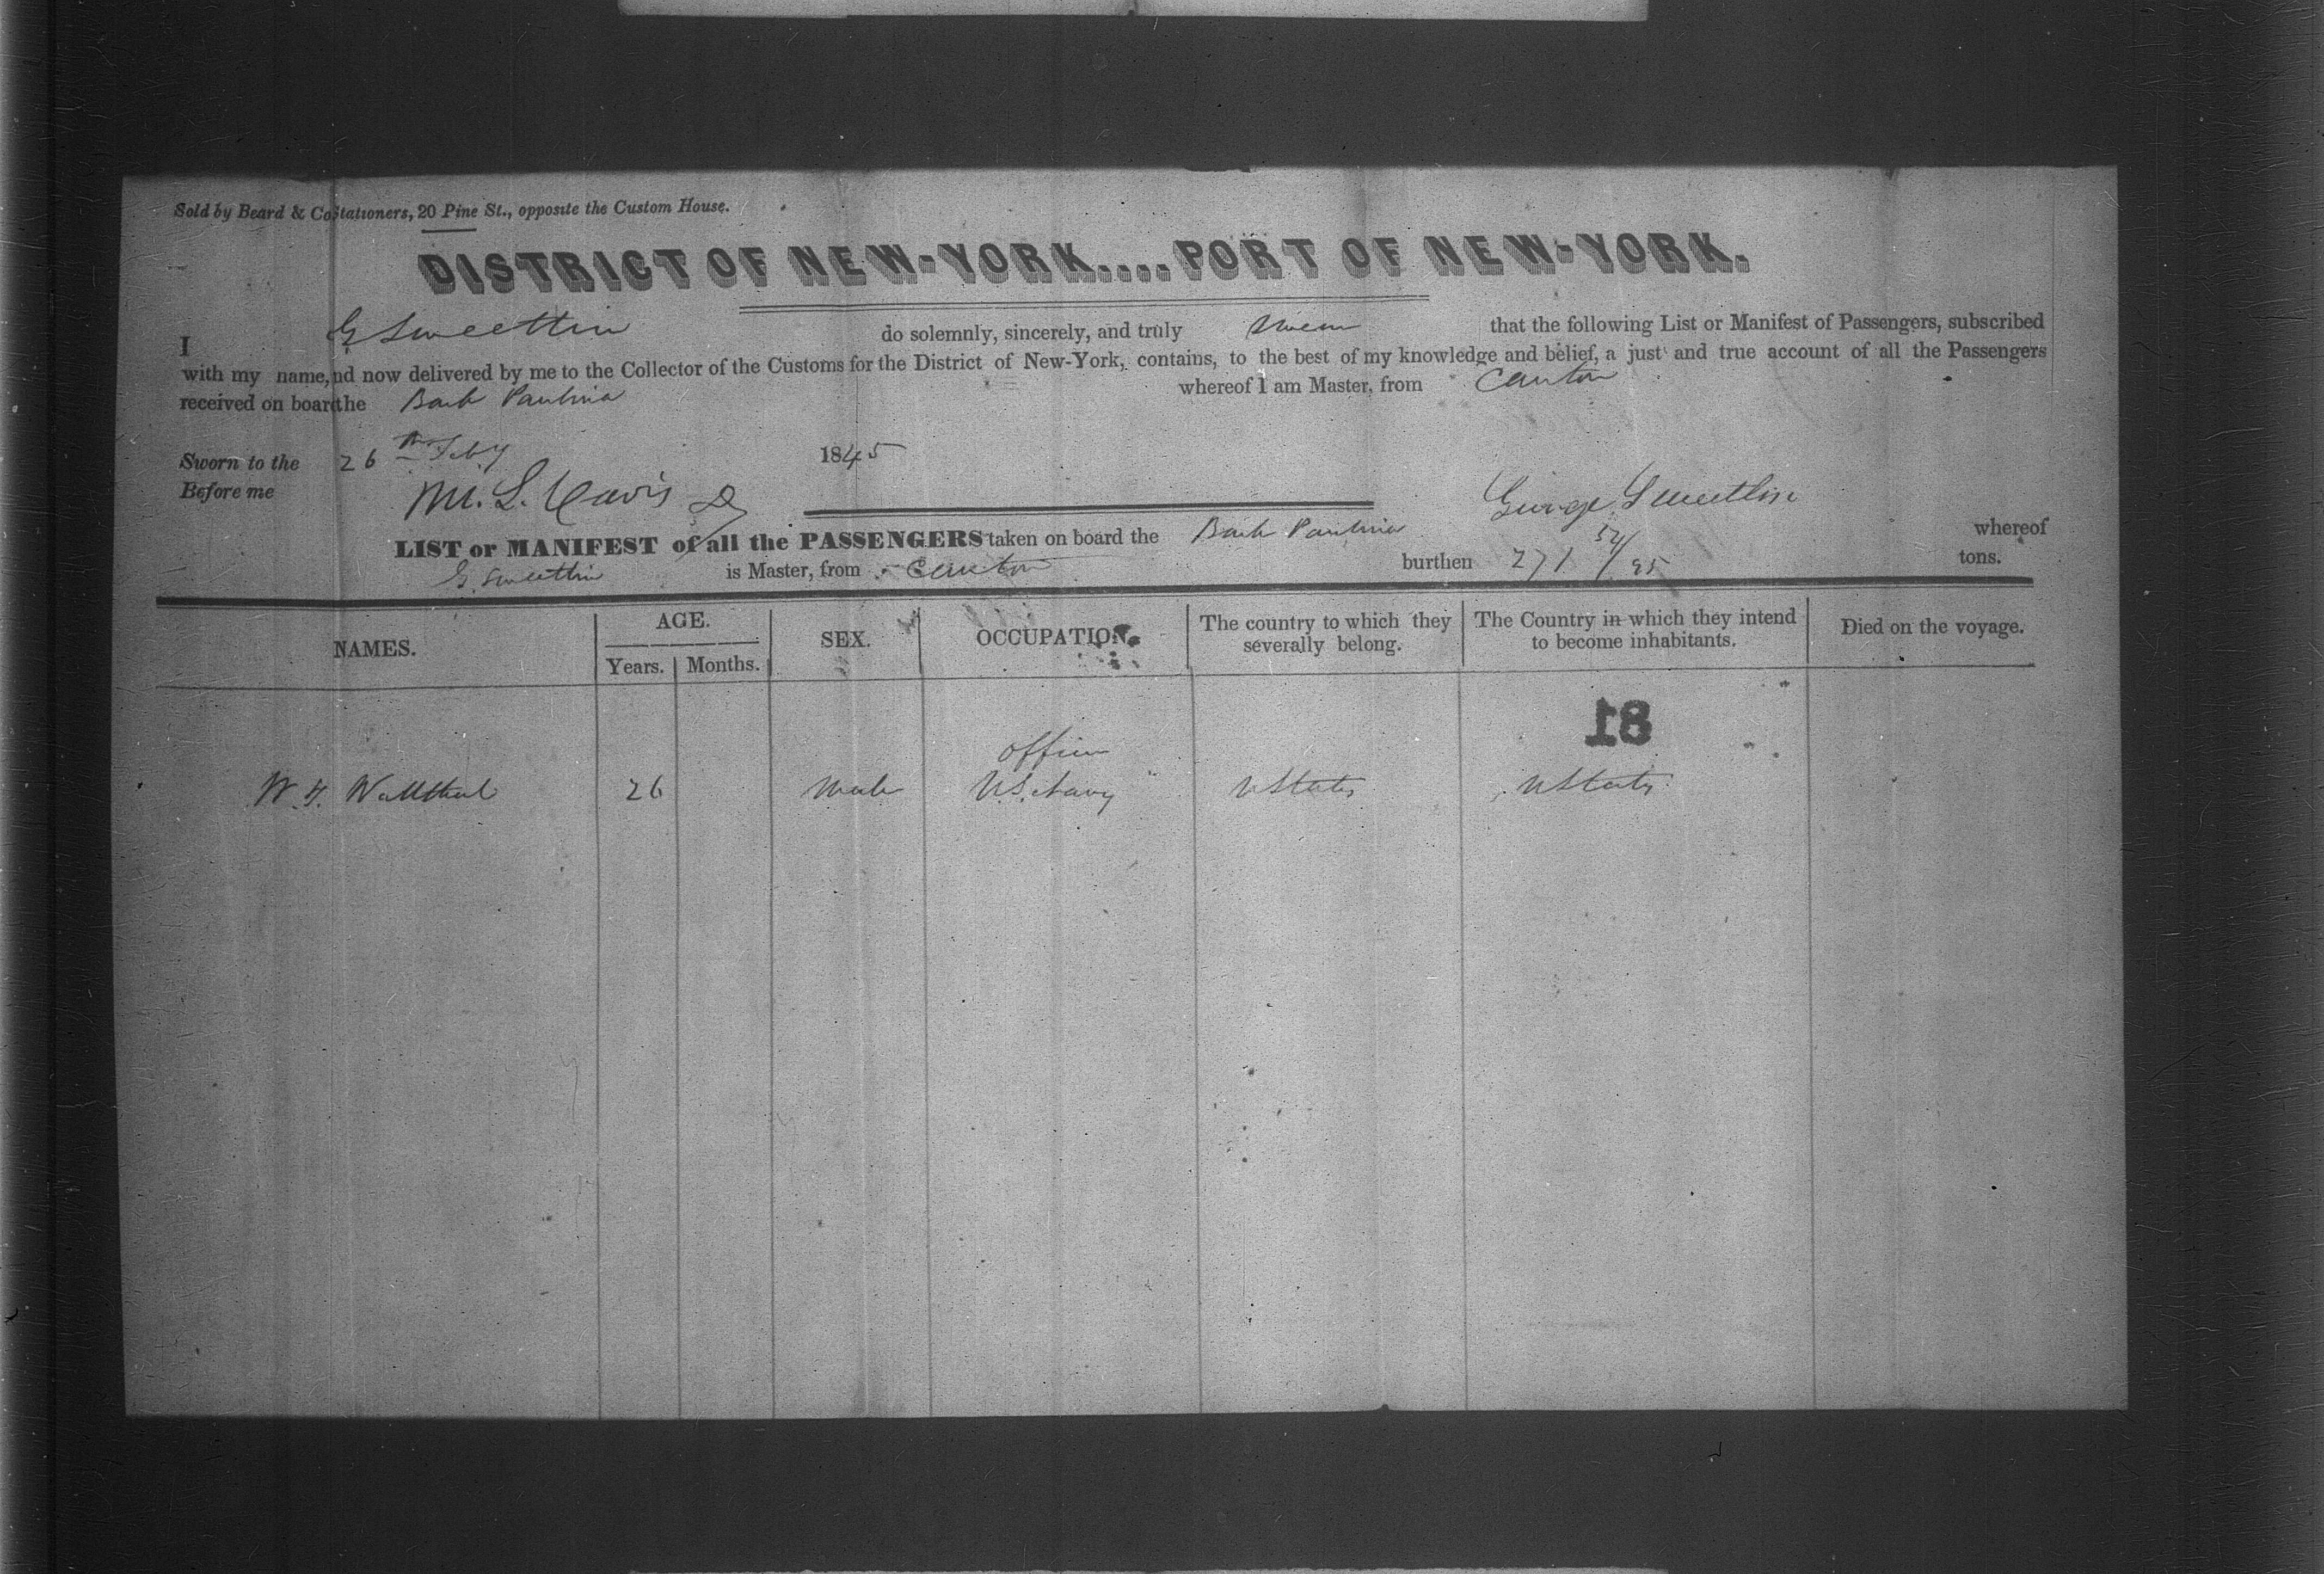 Sold by Beard & Co Stationers, 20 Pine St., opposite the Custom House.
DISTRICT OF NEW-YORK....PORT OF NEW-YORK.
I G Sweetlin do solemnly, sincerely, and truly swear that the following List or Manifest of Passengers, subscribed
with my name, nd now delivered by me to the Collector of the Customs for the District of New-York, contains, to the best of my knowledge and belief, a just and true account of all the Passengers
received on board the Bark Paulina whereof I am Master, from Canton
Sworn to the 26th Feby 1845
Before me M. L. Davis George Sweetlin
LIST or MANIFEST of all the PASSENGERS taken on board the Bark Paulina whereof
G. Sweetlin is Master, from Canton burthen 271 52/95 tons.
NAMES. AGE. Years. Months. SEX. OCCUPATION. The country to which they severally belong. The Country in which they intend to become inhabitants. Died on the voyage.
18
officer
W. 26 Male U.S. Navy U States U States